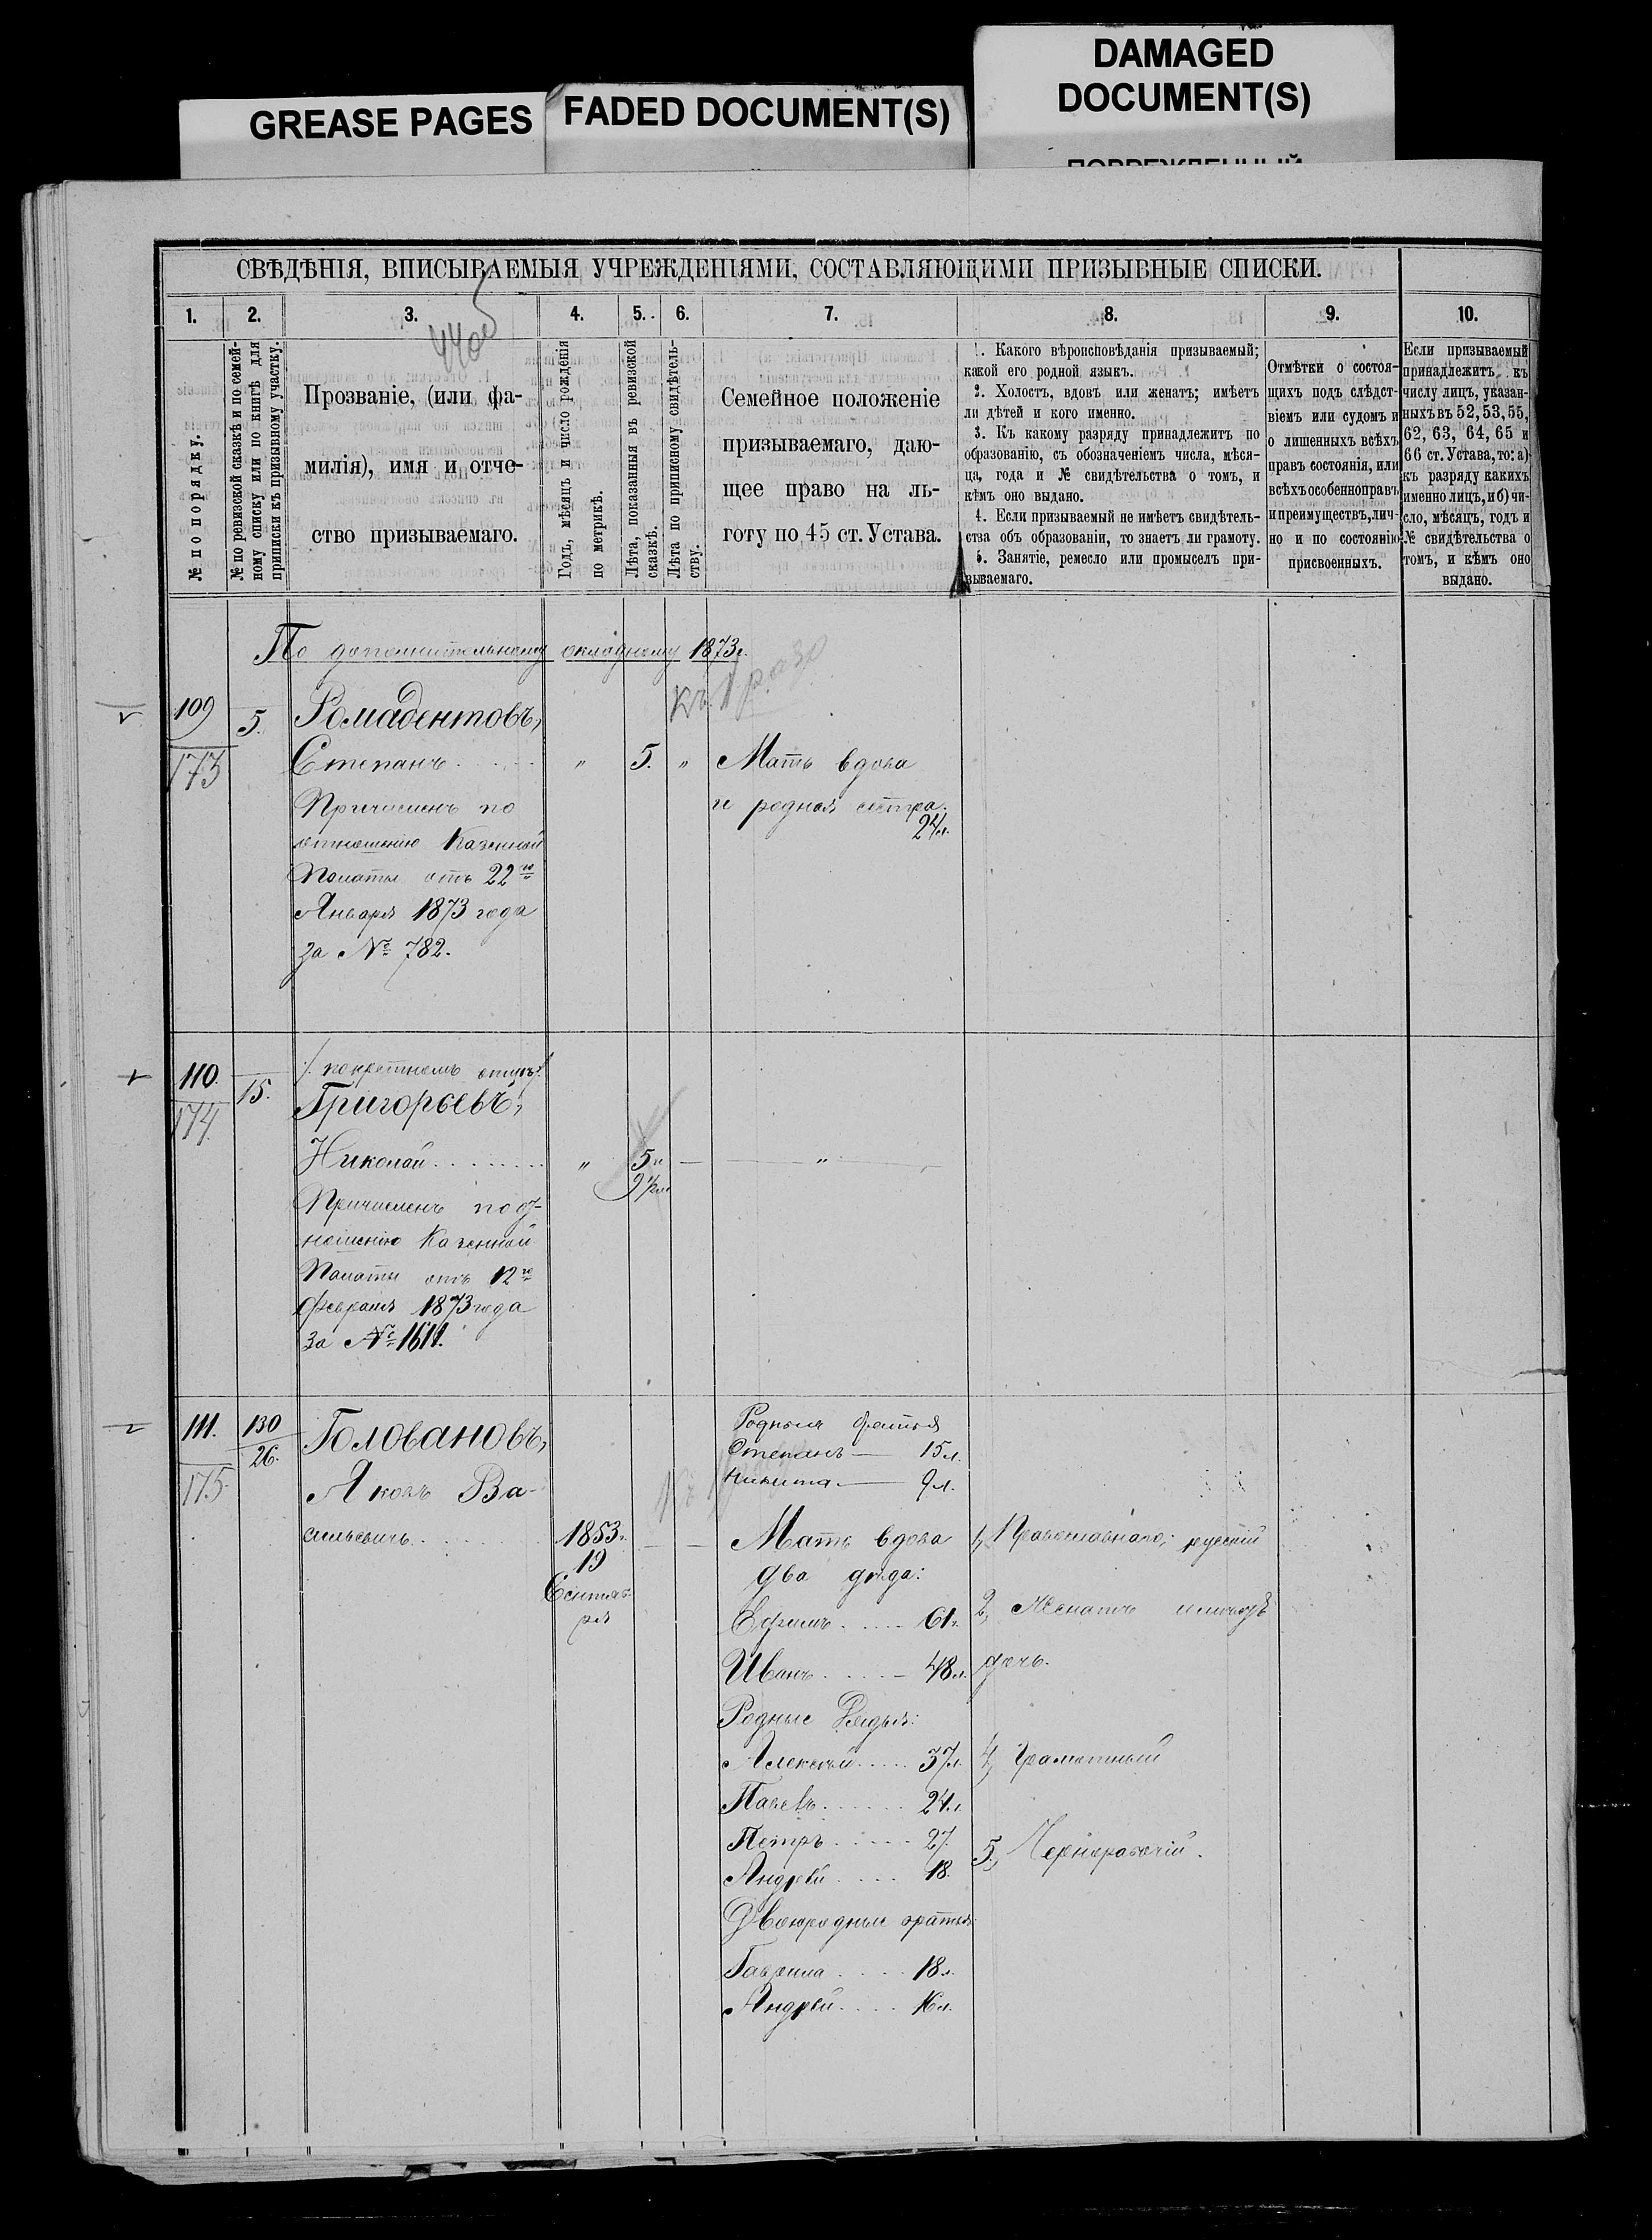 GREASE PAGES
FADED DOCUMENT(S)
DAMAGED
DOCUMENT(S)
СВѢДѢНІЯ, ВПИСЫВАЕМЫЯ УЧРЕЖДЕНІЯМИ, СОСТАВЛЯЮЩИМИ ПРИЗЫВНЫЕ СПИСКИ.
1.
2.
3.
4.
5.
6.
7.
8.
9.
10.
44об
№ по порядку.
№ по ревизской сказкѣ и по семей-
ному списку или по книгѣ для
приписки къ призывному участку.
Прозваніе, (или фа-
милія), имя и отче-
ство призываемаго.
Годъ, мѣсяцъ и число рожденія
по метрикѣ.
Лѣта, показанныя въ ревизской
сказкѣ.
Лѣта по приписному свидѣтель-
ству.
Семейное положеніе
призываемаго, даю-
щее право на ль-
готу по 45 ст. Устава.
1. Какого вѣроисповѣданія призываемый;
какой его родной языкъ.
2. Холостъ, вдовъ или женатъ; имѣетъ
ли дѣтей и кого именно.
3. Къ какому разряду принадлежитъ по
образованію, съ обозначеніемъ числа, мѣся-
ца, года и № свидѣтельства о томъ, и
кѣмъ оно выдано.
4. Если призываемый не имѣетъ свидѣтель-
ства объ образованіи, то знаетъ ли грамоту.
5. Занятіе, ремесло или промыселъ при-
зываемаго.
Отмѣтки о состоя-
щихъ подъ слѣдст-
віемъ или судомъ и
о лишенныхъ всѣхъ
правъ состоянія, или
всѣхъ особенно правъ
и преимуществъ, лич-
но и по состоянію
присвоенныхъ.
Если призываемый
принадлежитъ къ
числу лицъ, указан-
ныхъ въ 52, 53, 55,
62, 63, 64, 65 и
66 ст. Устава, то: а)
къ разряду какихъ
именно лицъ, и б) чи-
сло, мѣсяцъ, годъ и
№ свидѣтельства о
томъ, и кѣмъ оно
выдано.
По дополнительному окладному 1873г.
109
173
5.
Ромадентовъ,
Степанъ
"
5.
"
Мать вдова
и родная сестра.
24л.
Причисленъ по
отношенію Казенной
Полаты отъ 22го
Января 1873 года
за № 782.
110.
174
15.
Григорьевъ,
Николай
"
5
"
Причисленъ по от-
ношенію Казенной
Полаты отъ 12го
Февраля 1873 года
за № 1611.
111.
175.
130
26.
Головановъ,
Яковъ Ва-
сильевичъ
1853г.
19
Сентяб-
ря
Родныя братья
Степанъ — 15л.
Никита — 9л.
Мать вдова
два дѣда:
Ефимъ 61л.
Иванъ 48л.
Родные Дядья:
Алексѣй 37л.
Павелъ 24л.
Петръ 27.
Андрѣй 18.
Двоюродные братья
Гаврила 18л.
Андрѣй 16л.
1, Православнаго; русскій
2, Женатъ имѣетъ
дочь.
4, Грамотный
5, Чернорабочій.